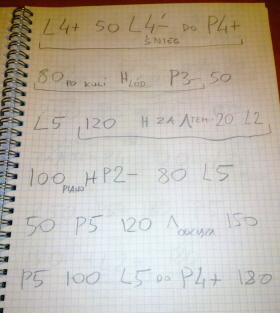 L4+ 50 L4- DO P4+
ŚNIEG
80 PO KULI H LÓD P3- 50
L5 120 H ZA Λ TEM 20 L2
100 PIANO H P2- 80 L5
50 P5 120 Λ 150
P5 100 L5 DO P4+ 180